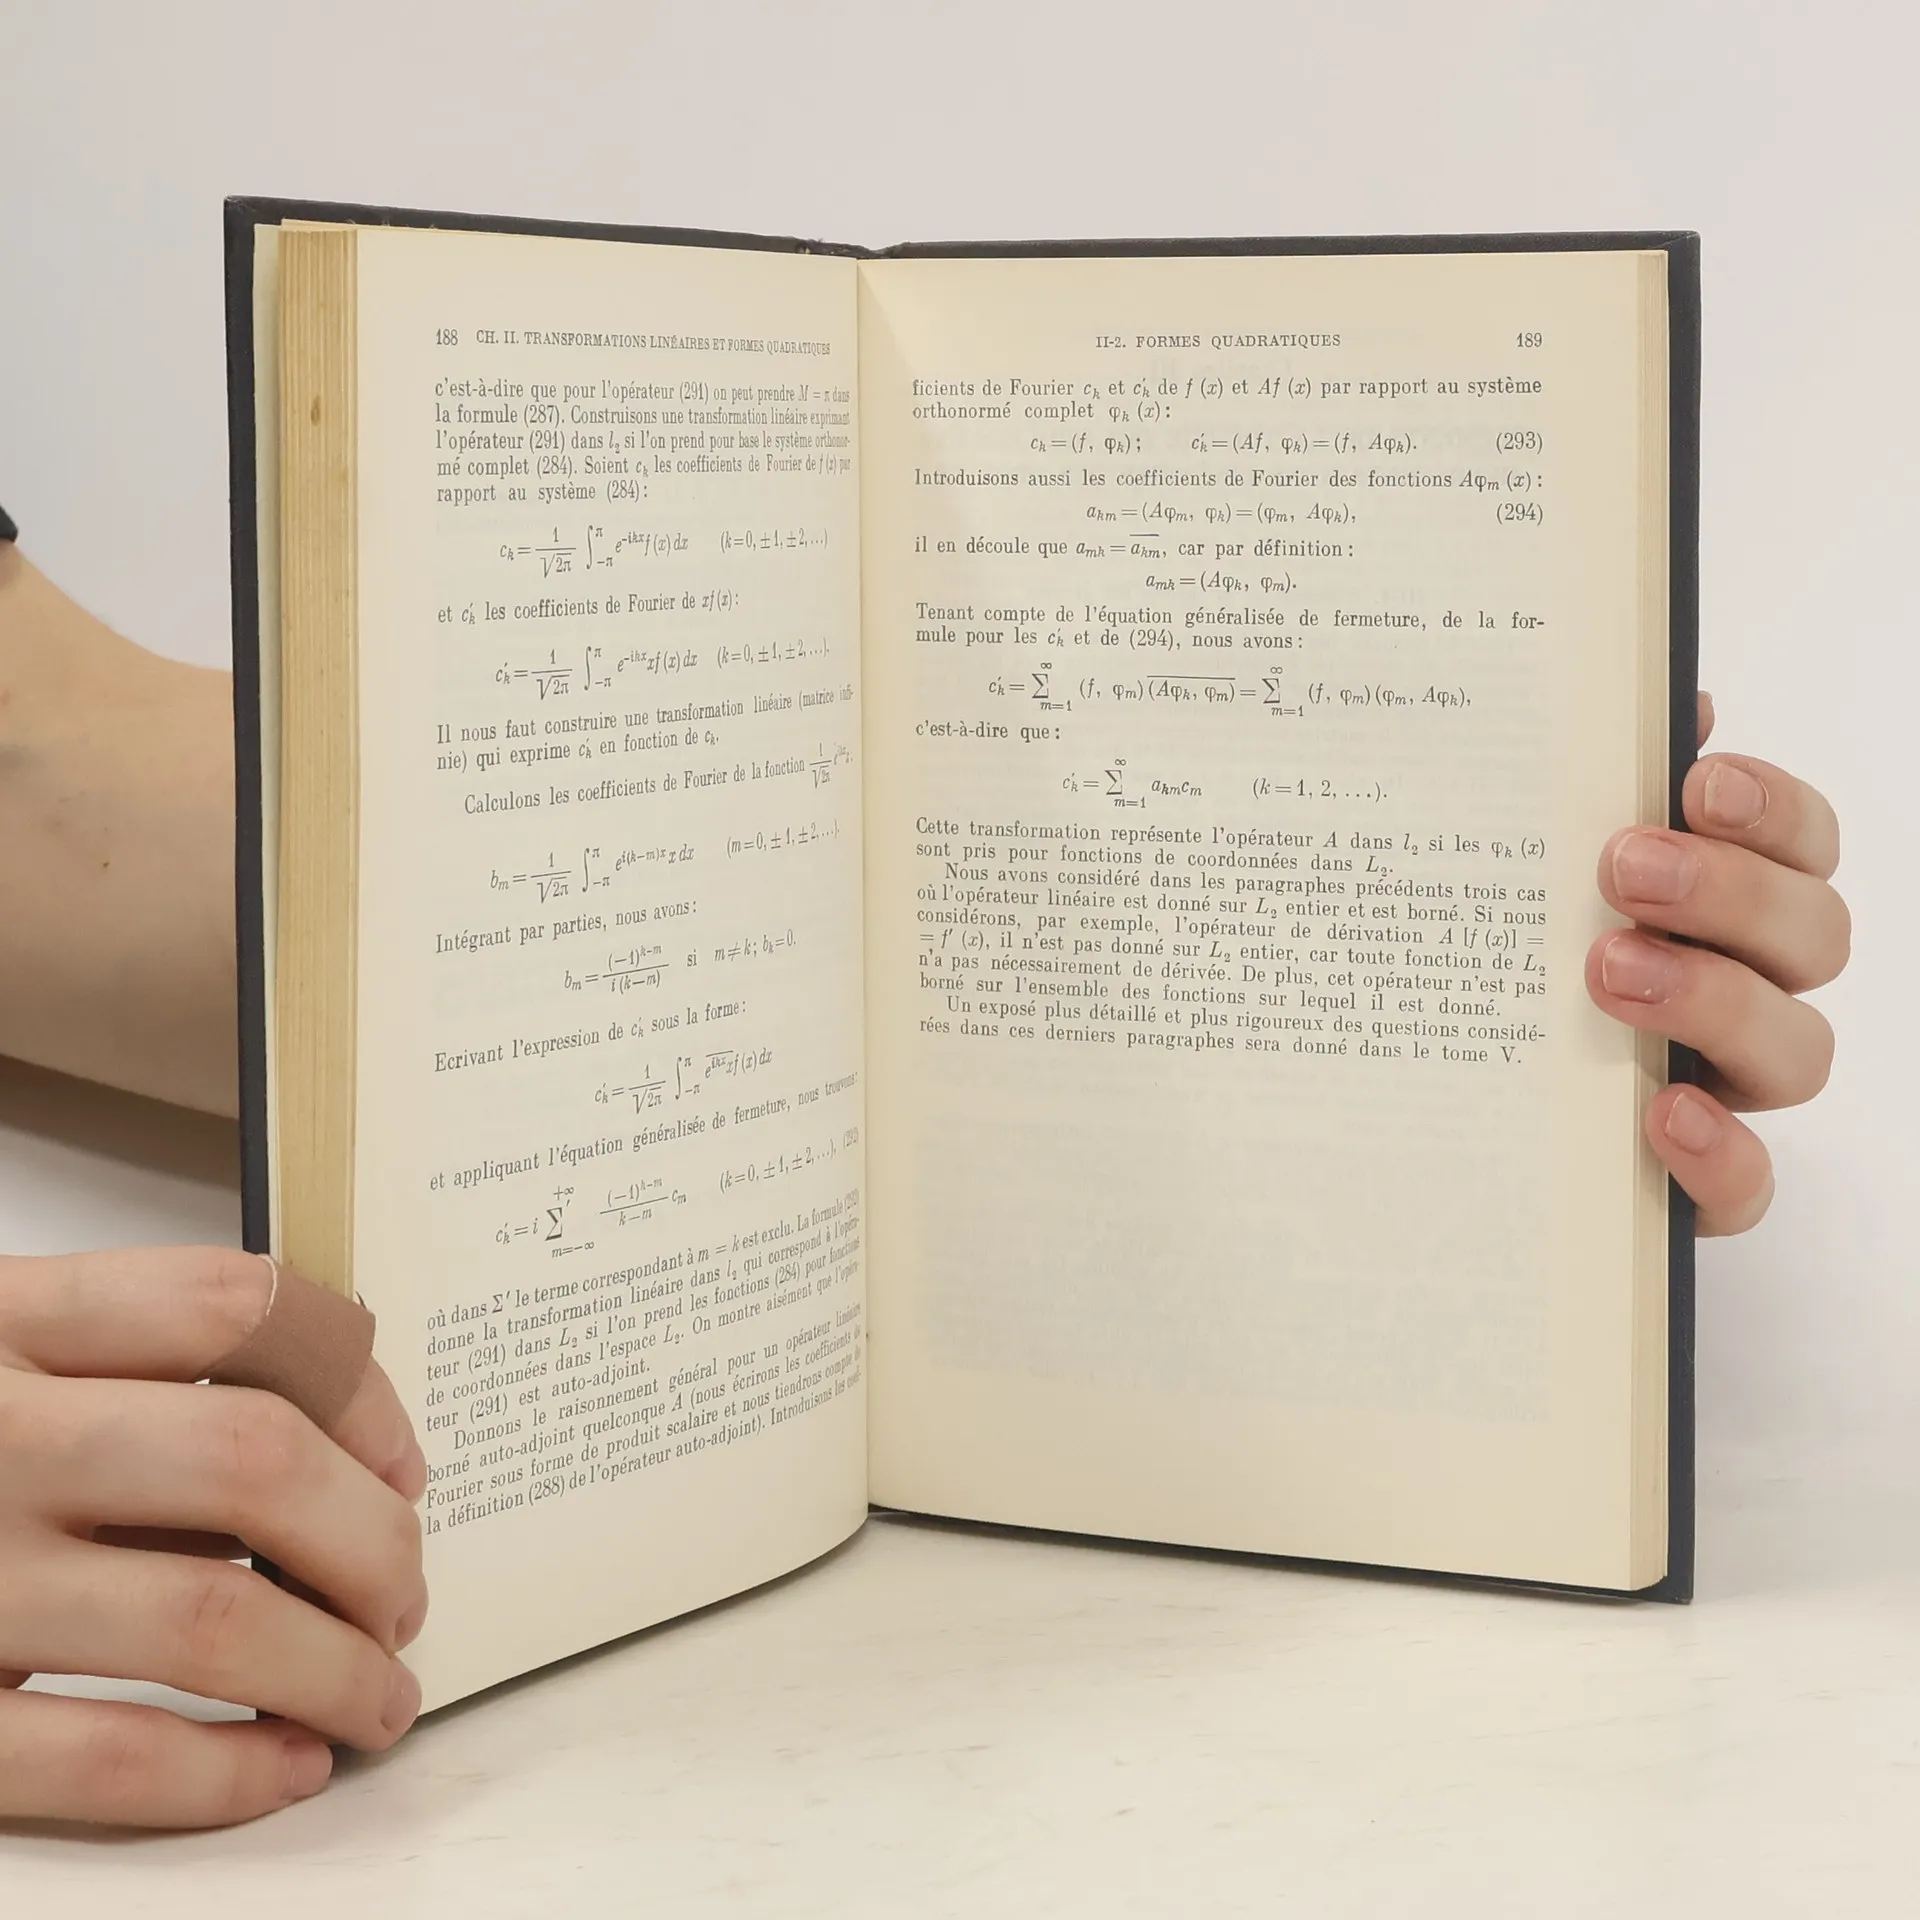 188 CH. II. TRANSFORMATIONS LINÉAIRES ET FORMES QUADRATIQUES
c'est-à-dire que pour l'opérateur (291) on peut prendre M = π dans
la formule (287). Construisons une transformation linéaire exprimant
l'opérateur (291) dans l₂ si l'on prend pour base le système orthonor-
mé complet (284). Soient cₖ les coefficients de Fourier de f (x) par
rapport au système (284):
cₖ = 1/√2π ∫_{−π}^{π} e^{−ikx} f (x) dx (k=0, ±1, ±2, ...)
et c′ₖ les coefficients de Fourier de xf (x):
c′ₖ = 1/√2π ∫_{−π}^{π} e^{−ikx} xf (x) dx (k=0, ±1, ±2, ...).
Il nous faut construire une transformation linéaire (matrice infi-
nie) qui exprime c′ₖ en fonction de cₖ.
Calculons les coefficients de Fourier de la fonction 1/√2π
bₘ = 1/√2π ∫_{−π}^{π} e^{i(k−m)x} x dx (m=0, ±1, ±2, ...).
Intégrant par parties, nous avons:
bₘ = (−1)^{k−m}/i (k−m) si m ≠ k; bₖ=0.
Ecrivant l'expression de c′ₖ sous la forme:
c′ₖ = 1/√2π ∫_{−π}^{π} \overline{e^{ikx}} xf (x) dx
et appliquant l'équation généralisée de fermeture, nous trouvons:
c′ₖ = i ∑′_{m=−∞}^{+∞} (−1)^{k−m}/k−m cₘ (k=0, ±1, ±2, ...), (292)
où dans ∑′ le terme correspondant à m = k est exclu. La formule (292)
donne la transformation linéaire dans l₂ qui correspond à l'opéra-
teur (291) dans L₂ si l'on prend les fonctions (284) pour fonctions
de coordonnées dans l'espace L₂. On montre aisément que l'opéra-
teur (291) est auto-adjoint.
Donnons le raisonnement général pour un opérateur linéaire
borné auto-adjoint quelconque A (nous écrirons les coefficients de
Fourier sous forme de produit scalaire et nous tiendrons compte de
la définition (288) de l'opérateur auto-adjoint). Introduisons les coef-
II-2. FORMES QUADRATIQUES 189
ficients de Fourier cₖ et c′ₖ de f (x) et Af (x) par rapport au système
orthonormé complet φₖ (x):
cₖ = (f, φₖ); c′ₖ = (Af, φₖ) = (f, Aφₖ). (293)
Introduisons aussi les coefficients de Fourier des fonctions Aφₘ (x):
aₖₘ = (Aφₘ, φₖ) = (φₘ, Aφₖ), (294)
il en découle que aₘₖ = \overline{aₖₘ}, car par définition:
aₘₖ = (Aφₖ, φₘ).
Tenant compte de l'équation généralisée de fermeture, de la for-
mule pour les c′ₖ et de (294), nous avons:
c′ₖ = ∑_{m=1}^{∞} (f, φₘ) \overline{(Aφₖ, φₘ)} = ∑_{m=1}^{∞} (f, φₘ) (φₘ, Aφₖ),
c'est-à-dire que:
c′ₖ = ∑_{m=1}^{∞} aₖₘcₘ (k = 1, 2, ...).
Cette transformation représente l'opérateur A dans l₂ si les φₖ (x)
sont pris pour fonctions de coordonnées dans L₂.
Nous avons considéré dans les paragraphes précédents trois cas
où l'opérateur linéaire est donné sur L₂ entier et est borné. Si nous
considérons, par exemple, l'opérateur de dérivation A [f (x)] =
= f′ (x), il n'est pas donné sur L₂ entier, car toute fonction de L₂
n'a pas nécessairement de dérivée. De plus, cet opérateur n'est pas
borné sur l'ensemble des fonctions sur lequel il est donné.
Un exposé plus détaillé et plus rigoureux des questions considé-
rées dans ces derniers paragraphes sera donné dans le tome V.